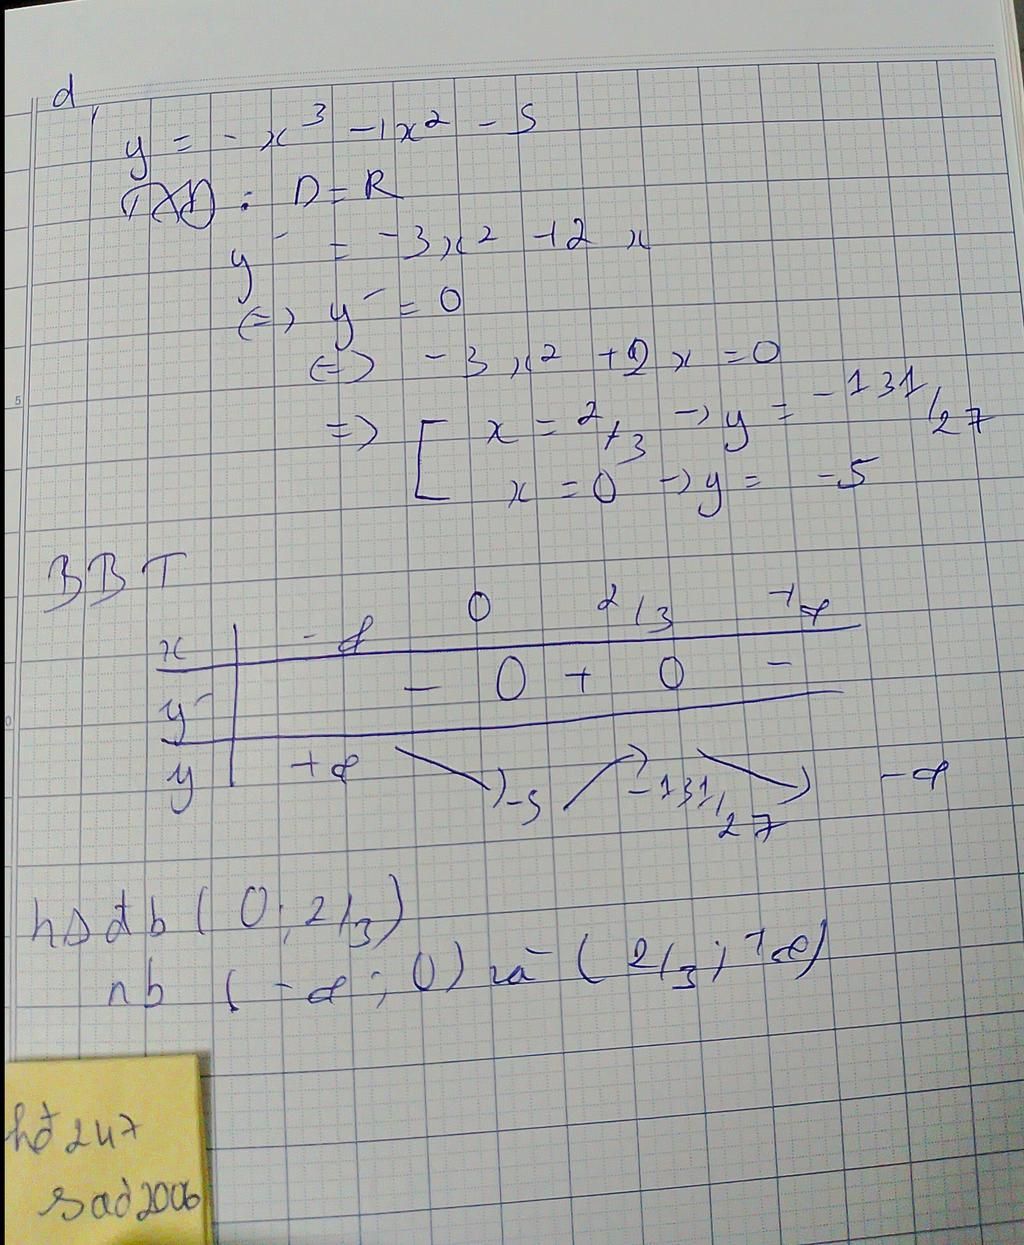 d,
y = - x³ -1x² - 5
TXĐ : D = R
y' = -3x² +2 x
<=> y' = 0
<=> -3x² +2x = 0
=> [ x = 2/3 -> y = -131/27
x = 0 -> y = -5
BBT
x -∞ 0 2/3 +∞
y' - 0 + 0 -
y +∞ -5 -131/27 -∞
hs đb ( 0 ; 2/3 )
nb ( -∞ ; 0 ) và ( 2/3 ; +∞ )
5
0
hđ247
sad2006